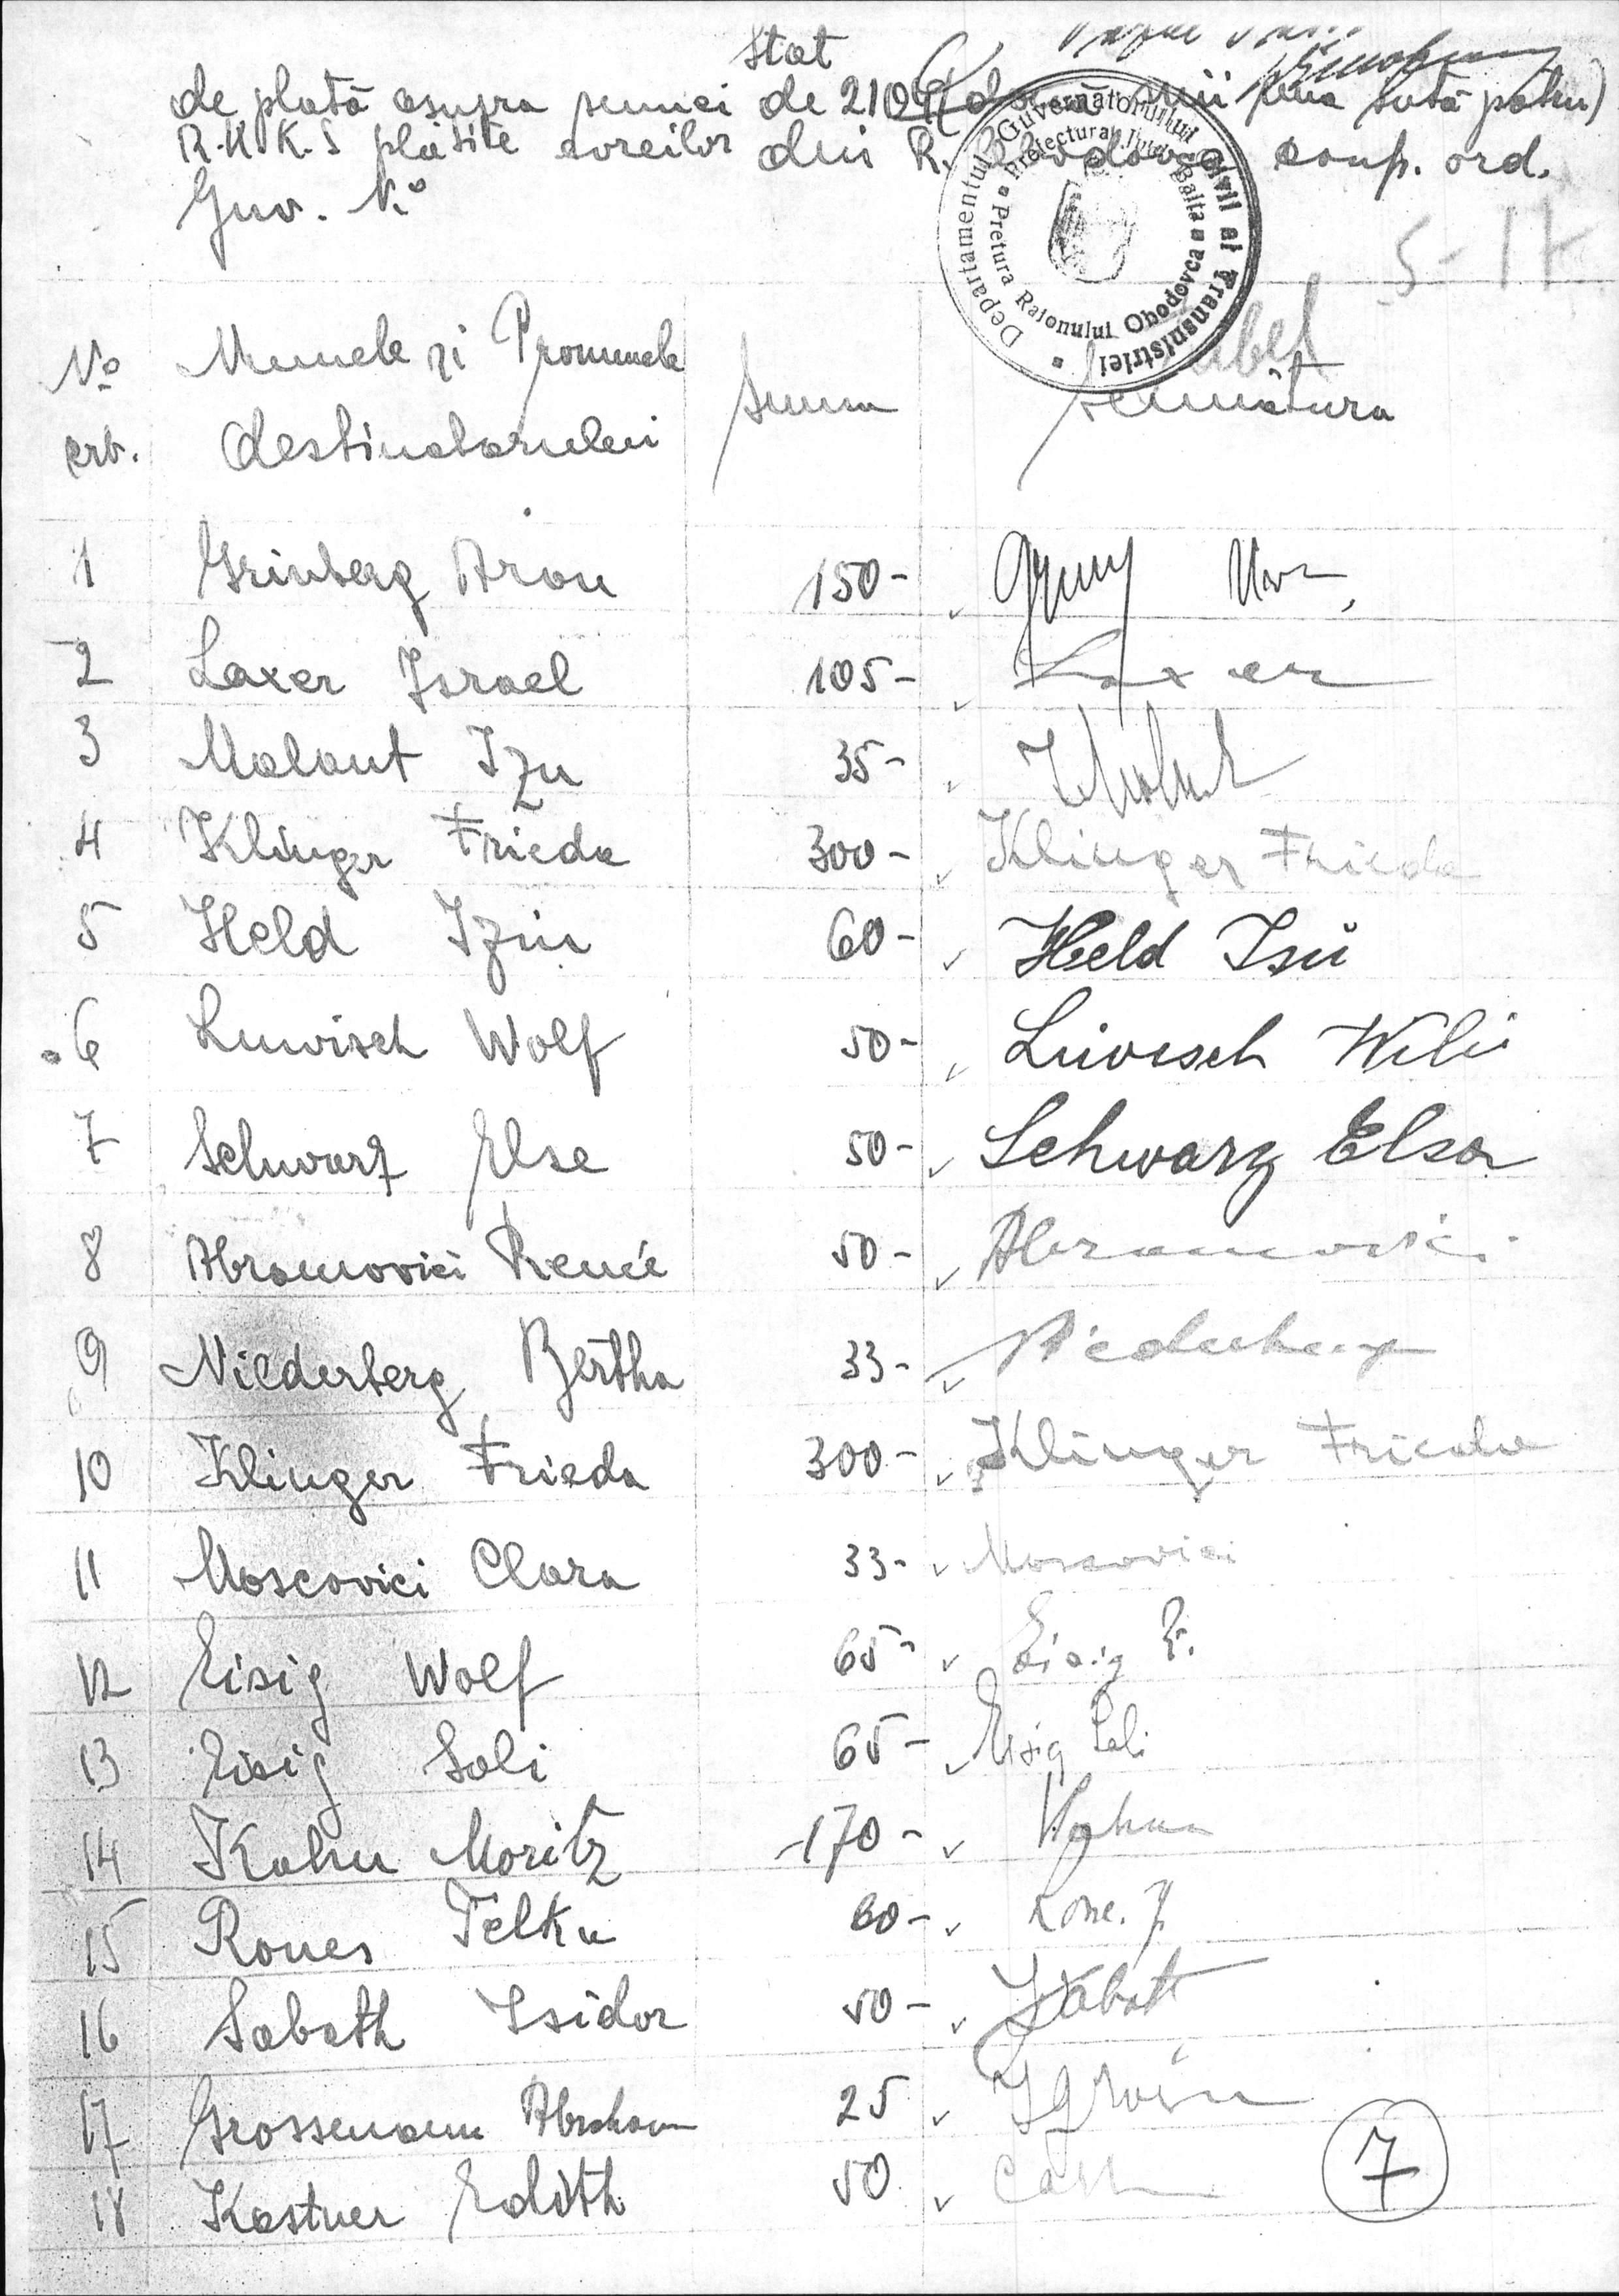 Stat
de plată asupra sumei de 2104 (două mii una sută patru)
R.K.K.S plătite evreilor din R. Obodovca conf. ord.
Guv. No
Departamentul Guvernatorului Civil al Transnistriei
Prefectura Jud. Balta
Pretura Raionului Obodovca
5-17
No Numele și Pronumele Suma Semnătura
crt. destinatarului
1 Grinberg Aron 150-
2 Laxer Israel 105- Laxer
3 Malaut Izu 35-
4 Klinger Frieda 300- Klinger Frieda
5 Held Iziu 60- Held Isù
6 Luwisch Wolf 50- Liwisch Wili
7 Schwarz Else 50- Schwarz Elsa
8 Abramovici Renée 50- Abramovici
9 Niederberg Bertha 33- Niederberg
10 Klinger Frieda 300- Klinger Frieda
11 Moscovici Clara 33- Moscovici
12 Eisig Wolf 65- Eisig
13 Eisig Sali 65- Eisig Sali
14 Kahn Moritz 170- Kahn
15 Rones 60-
16 Sabath Isidor 50- Sabath
17 Grossmann Abraham 25
18 Kastner Edith 50
7